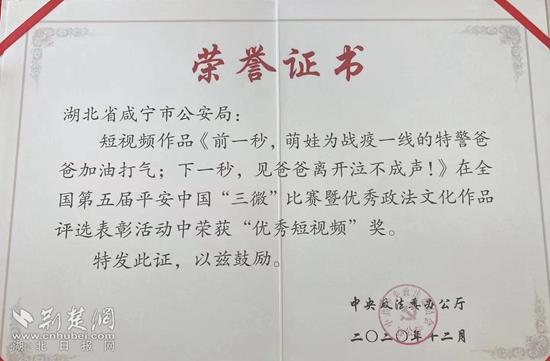 荣誉证书
湖北省咸宁市公安局：
短视频作品《前一秒，萌娃为战疫一线的特警爸
爸加油打气；下一秒，见爸爸离开泣不成声！》在全
国第五届平安中国“三微”比赛暨优秀政法文化作品
评选表彰活动中荣获“优秀短视频”奖。
特发此证，以兹鼓励。
中央政法委办公厅
二〇二〇年十二月
荆楚网
www.cnhubei.com
湖北日报网